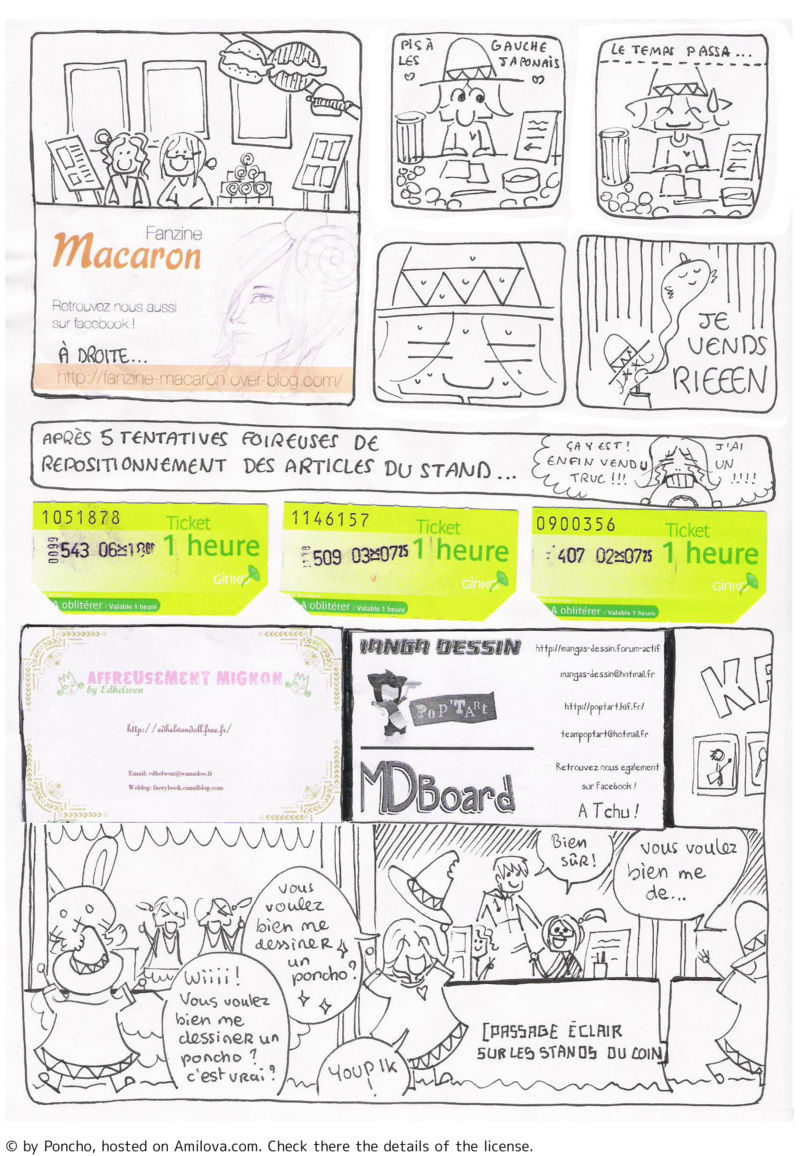 Fanzine
Macaron
Retrouvez nous aussi
sur facebook !
À DROITE...
http://fanzine-macaron.over-blog.com/
PIS À GAUCHE
LES JAPONAIS
LE TEMPS PASSA...
JE
VENDS
RIEEEN
APRÈS 5 TENTATIVES FOIREUSES DE
REPOSITIONNEMENT DES ARTICLES DU STAND...
ÇA Y EST !
ENFIN VENDU
TRUC !!!
J'AI
UN
!!!!
1051878
Ticket
1 heure
Ginko
A oblitérer / Valable 1 heure
1146157
Ticket
1 heure
Ginko
A oblitérer / Valable 1 heure
0900356
Ticket
1 heure
Ginko
A oblitérer / Valable 1 heure
AFFREUSEMENT MIGNON
by Edhelwen
http://edhelwendoll.free.fr/
Email: edhelwen@wanadoo.fr
Weblog: faerybook.canalblog.com
MANGA DESSIN
POP'TART
MDBoard
http://mangas-dessin.forum-actif
mangas-dessin@hotmail.fr
http://poptart.kif.fr/
teampoptart@hotmail.fr
Retrouvez nous egalement
sur Facebook !
A Tchu !
vous
voulez
bien me
dessiner
un
poncho ?
Wiiii !
Vous voulez
bien me
dessiner un
poncho ?
c'est vrai ?
Youpik
Bien
sûr !
vous voulez
bien me
de...
[PASSAGE ÉCLAIR
SUR LES STANDS DU COIN]
© by Poncho, hosted on Amilova.com. Check there the details of the license.